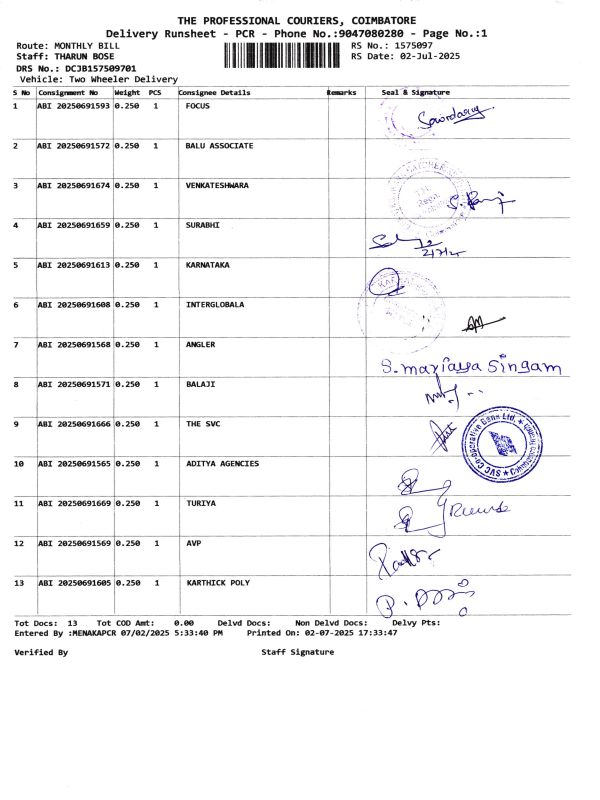 THE PROFESSIONAL COURIERS, COIMBATORE
Delivery Runsheet - PCR - Phone No.:9047080280 - Page No.:1
Route: MONTHLY BILL RS No.: 1575097
Staff: THARUN BOSE RS Date: 02-Jul-2025
DRS No.: DCJB157509701
Vehicle: Two Wheeler Delivery
S No Consignment No Weight PCS Consignee Details Remarks Seal & Signature
1 ABI 20250691593 0.250 1 FOCUS
2 ABI 20250691572 0.250 1 BALU ASSOCIATE
3 ABI 20250691674 0.250 1 VENKATESHWARA
4 ABI 20250691659 0.250 1 SURABHI
2/7/25
5 ABI 20250691613 0.250 1 KARNATAKA
6 ABI 20250691608 0.250 1 INTERGLOBALA
7 ABI 20250691568 0.250 1 ANGLER
S. mariaya Singam
8 ABI 20250691571 0.250 1 BALAJI
9 ABI 20250691666 0.250 1 THE SVC
SVC Co-operative Bank Ltd.
10 ABI 20250691565 0.250 1 ADITYA AGENCIES
11 ABI 20250691669 0.250 1 TURIYA
12 ABI 20250691569 0.250 1 AVP
13 ABI 20250691605 0.250 1 KARTHICK POLY
Tot Docs: 13 Tot COD Amt: 0.00 Delvd Docs: Non Delvd Docs: Delvy Pts:
Entered By :MENAKAPCR 07/02/2025 5:33:40 PM Printed On: 02-07-2025 17:33:47
Verified By Staff Signature